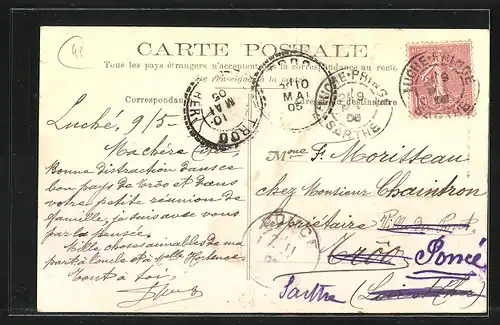 41
CARTE POSTALE
Tous les pays étrangers n'acceptent pas la correspondance au recto
se renseigner à la poste
Correspondance
Adresse du destinataire
LUCHÉ-PRINGÉ
9
SARTHE
TROO
10
MAI
05
Luché, 9/5
Ma chère
Bonne distraction dans ce
bon pays de Trôo et dans
votre petite réunion de
famille, je suis avec vous
par la pensée
Mille choses aimables de ma
part à l'oncle et à Melle Hortense
Tout à toi
Mme F. Morisseau
chez Monsieur Chaintron
propriétaire
Trôo Poncé
Sarthe (Loir et Cher)